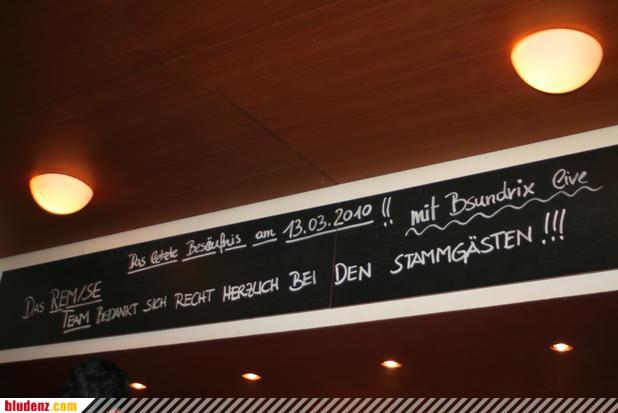 Das letzte Besäufnis am 13.03.2010 !! mit Bsundrix live
Das REM/SE
TEAM BEDANKT SICH RECHT HERZLICH BEI DEN STAMMGÄSTEN !!!
bludenz.com